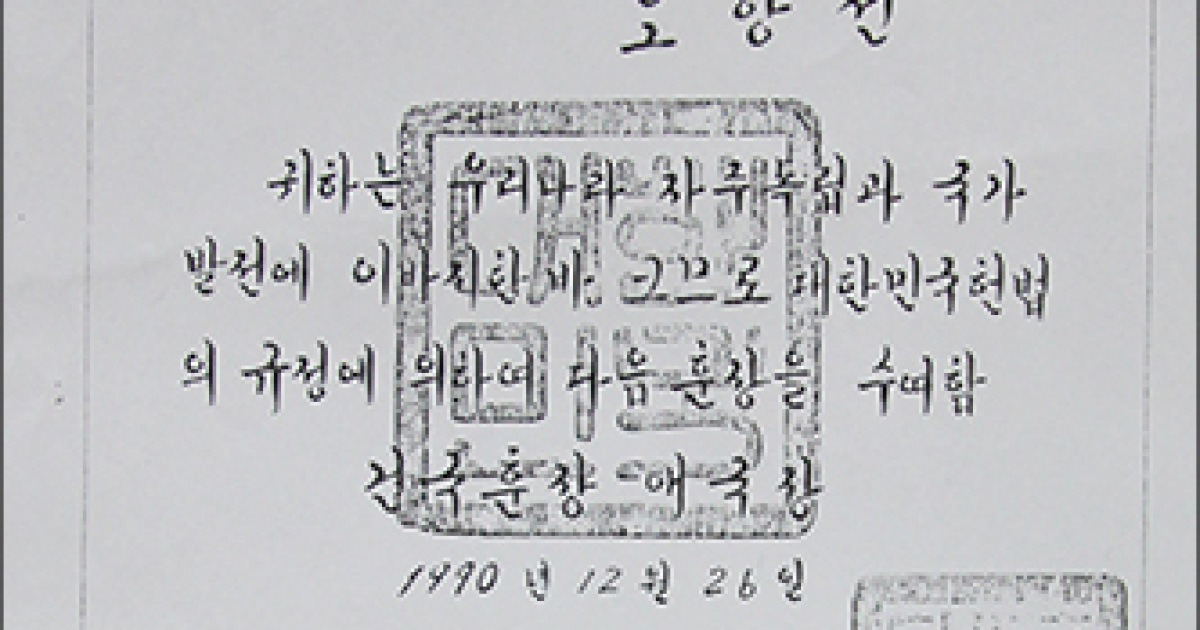 귀하는 우리나라 자주독립과 국가
발전에 이바지한바 그므로 대한민국헌법
의 규정에 의하여 다음 훈장을 수여함
건국훈장 애국장
1990년 12월 26일